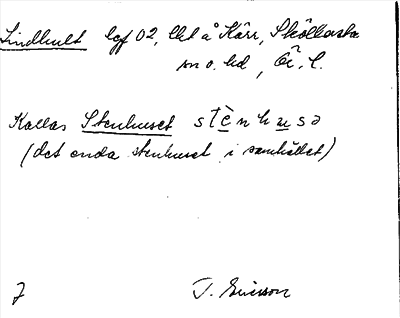 Lindhult lgf 02, lht å Kärr, Sköllersta
sn o. hd, Ör. l.
Kallas Stenhuset stènhusə
(det enda stenhuset i samhället)
J. Ericson